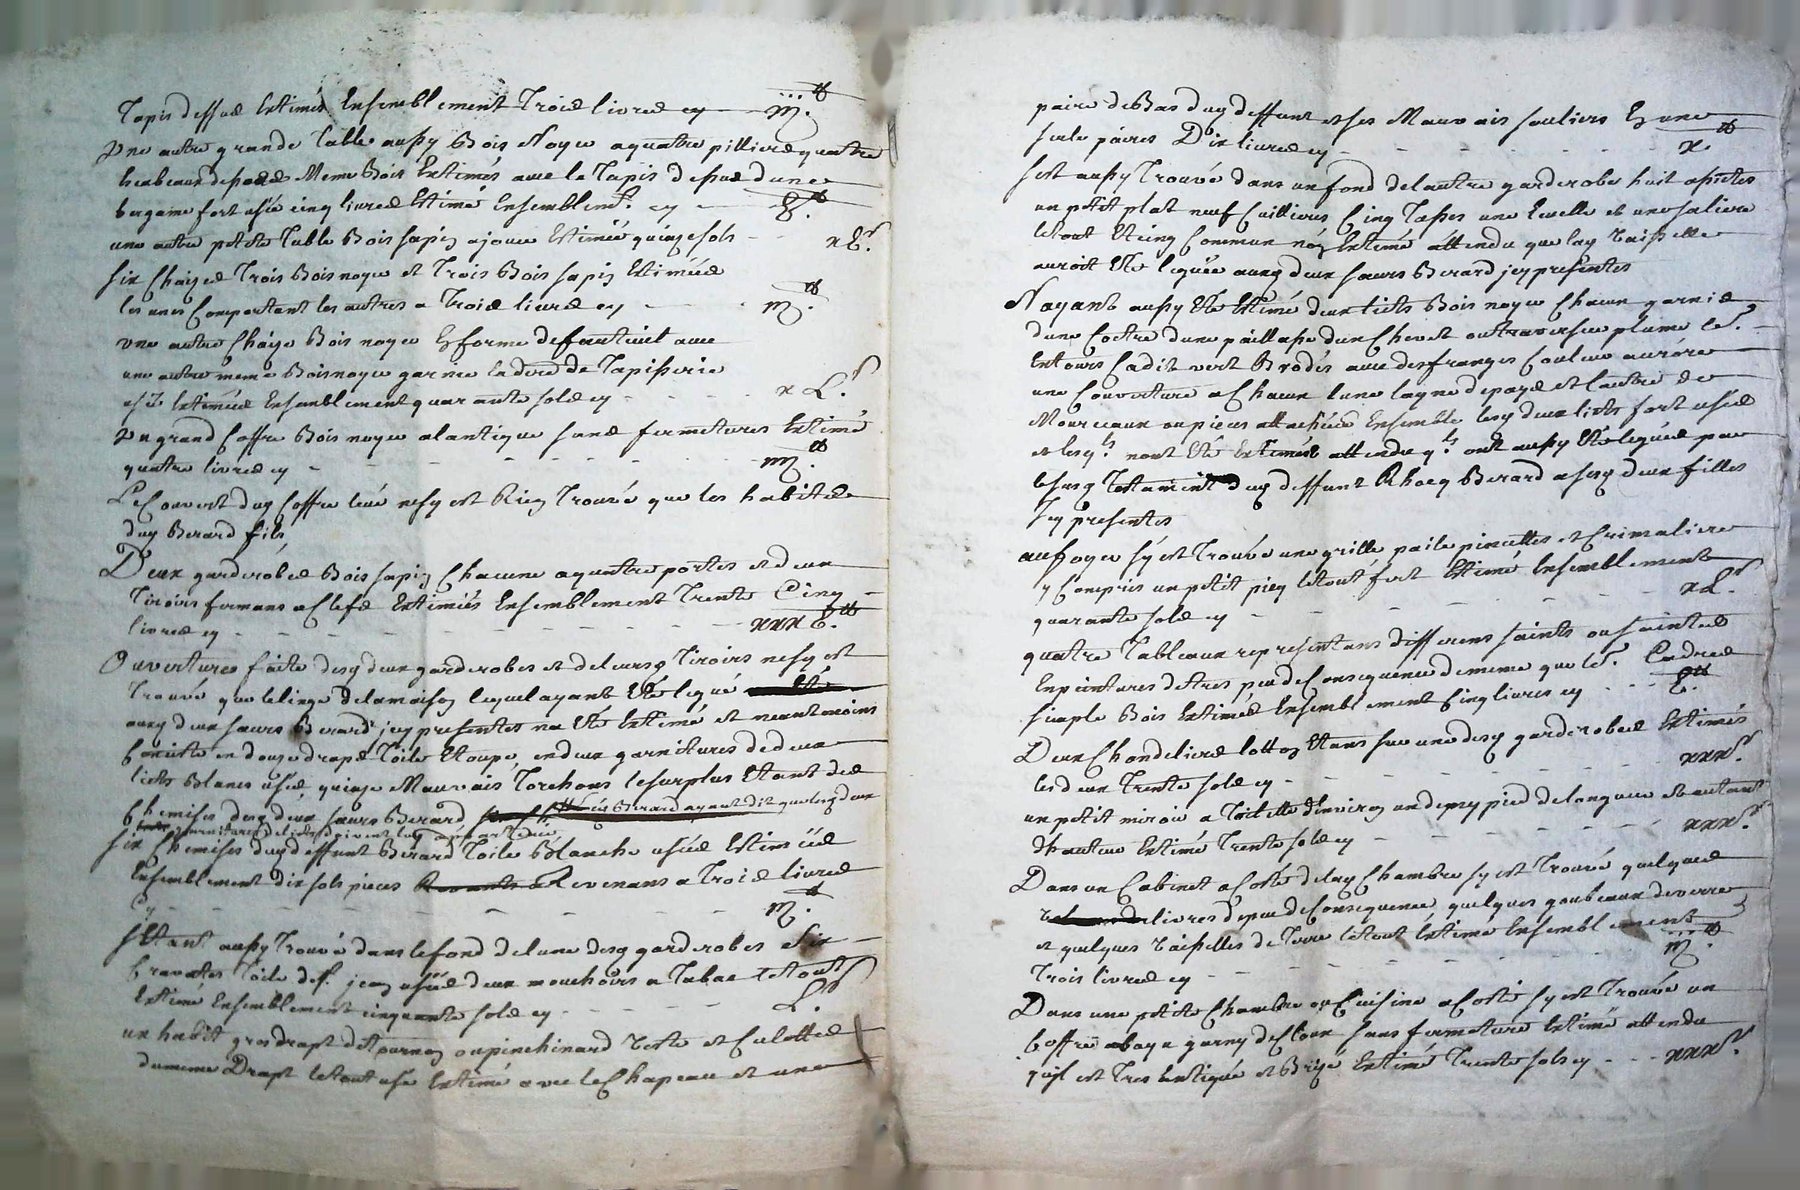 Tapis dessus Estimés Ensemblement Trois livres cy — iij.tt
Une autre grande Table aussy Bois Noyer a quatre pilliers quatre
Meme Bois Estimés avec le Tapis dessus d'une
bergame fort usé cinq livres Estimé Ensemblemt. cy — v.tt
une autre petite Table Bois sapin a jouer Estimée quinze sols — xv.s
six Chaizes Trois Bois noyer et Trois Bois sapin Estimées
les unes Comportant les autres a Trois livres cy — iij.tt
une autre Chaize Bois noyer En forme de fauteuil avec
une autre meme Bois noyer garnie de Tapisserie
usée Estimées Ensemblement quarante sols cy — xL.s
Un grand Coffre Bois noyer a lantique sans fermetures Estimé
quatre livres cy — iiij.tt
Le Couvert dud Coffre levé ne sy est Rien Trouvé que les habits
dud Berard fils
Deux garderobes Bois sapin Chacune a quatre portes et deux
Tiroirs fermans a Clefs Estimés Ensemblement Trente Cinq
livres cy — xxxv.tt
Ouvertures faite desd deux garderobes et de leursd Tiroirs ne sy est
Trouvé que le linge de la maison lequel ayant Eté legué
auxd deux sœurs Berard jcy presentes na Eté Estimé et neantmoins
Consiste en douze draps Toile Etoupe, en deux garnitures de deux
lits Blancs usés, quinze Mauvais Torchons le surplus Etant des
Chemises desd deux sœurs Berard Berard ayant dit que lesd deux
garnitures de lits
six Chemises dud deffunt Berard Toile Blanche usées Estimées
Ensemblement dix sols pieces Revenans a Trois livres
Cy — iij.tt
S Etant aussy Trouvé dans le fond de lune desd garderobes Six
Cravates Toile de St. jean usées deux mouchoirs a Tabac le tout
Estimé Ensemblement cinquante sols cy — L.s
un habit gros drapt ou pinchinard Veste et Culottes
du meme Drapt le tout usé Estimé avec le Chapeau et une
paire de Bas dud deffunt et ses Mauvais souliers En une
seule paires Dix livres cy — x.tt
sest aussy Trouvé dans un fond de lautre garderobe huit assietes
un petit plat neuf Cuillieres Cinq Tasses une Ecuelle et une saliere
le tout Etaing Commun non Estimé attendu que lad vaisselle
auroit Eté leguée auxd deux sœurs Berard jcy presentes
Nayant aussy Eté Estimé deux liets Bois noyer Chacun garnis
dune Coetre dune paillasse dun Chevet ou traversier plume le
Entours Cadit vert Brodés avec des franges Couleur aurore
une Couverture a Chacun lune layne de pays et lautre de
Morceaux ou pieces attachées Ensemble lesd deux liets fort usés
et lesqls nont Eté Estimés attendu qls ont aussy Eté legués par
le susd Testament dud deffunt Berard a sesd deux filles
Jcy presentes
au foyer sy est Trouvé une grille paile pincettes et Crimaliere
y Compris un petit le tout fert Estimé Ensemblement
quarante sols cy — xL.s
quatre Tableaux representans differens saints ou saintes
En peintures de tres peu de Consequence de meme que le Cadres
simple Bois Estimés Ensemblement Cinq livres cy — v.tt
Deux Chandeliers lotton Etans sur une desd garderobes Estimés
les deux Trente sols cy — xxx.s
un petit miroir a Toilette denviron un demy pied de longueur et autant
d'hauteur Estimé Trente sols cy — xxx.s
Dans un Cabinet a Coté de lad Chambre sy est Trouvé quelques
livres de peu de Consequence quelques goubeaux de verre
et quelques vaisselles de Terre le tout Estimé Ensemblement
Trois livres cy — iij.tt
Dans une petite Chambre ou Cuisine a Coté sy est Trouvé un
Coffre a garny de Cloux sans fermeture Estimé attendu
quil est Tres antique et Brizé Estimé Trente sols cy — xxx.s